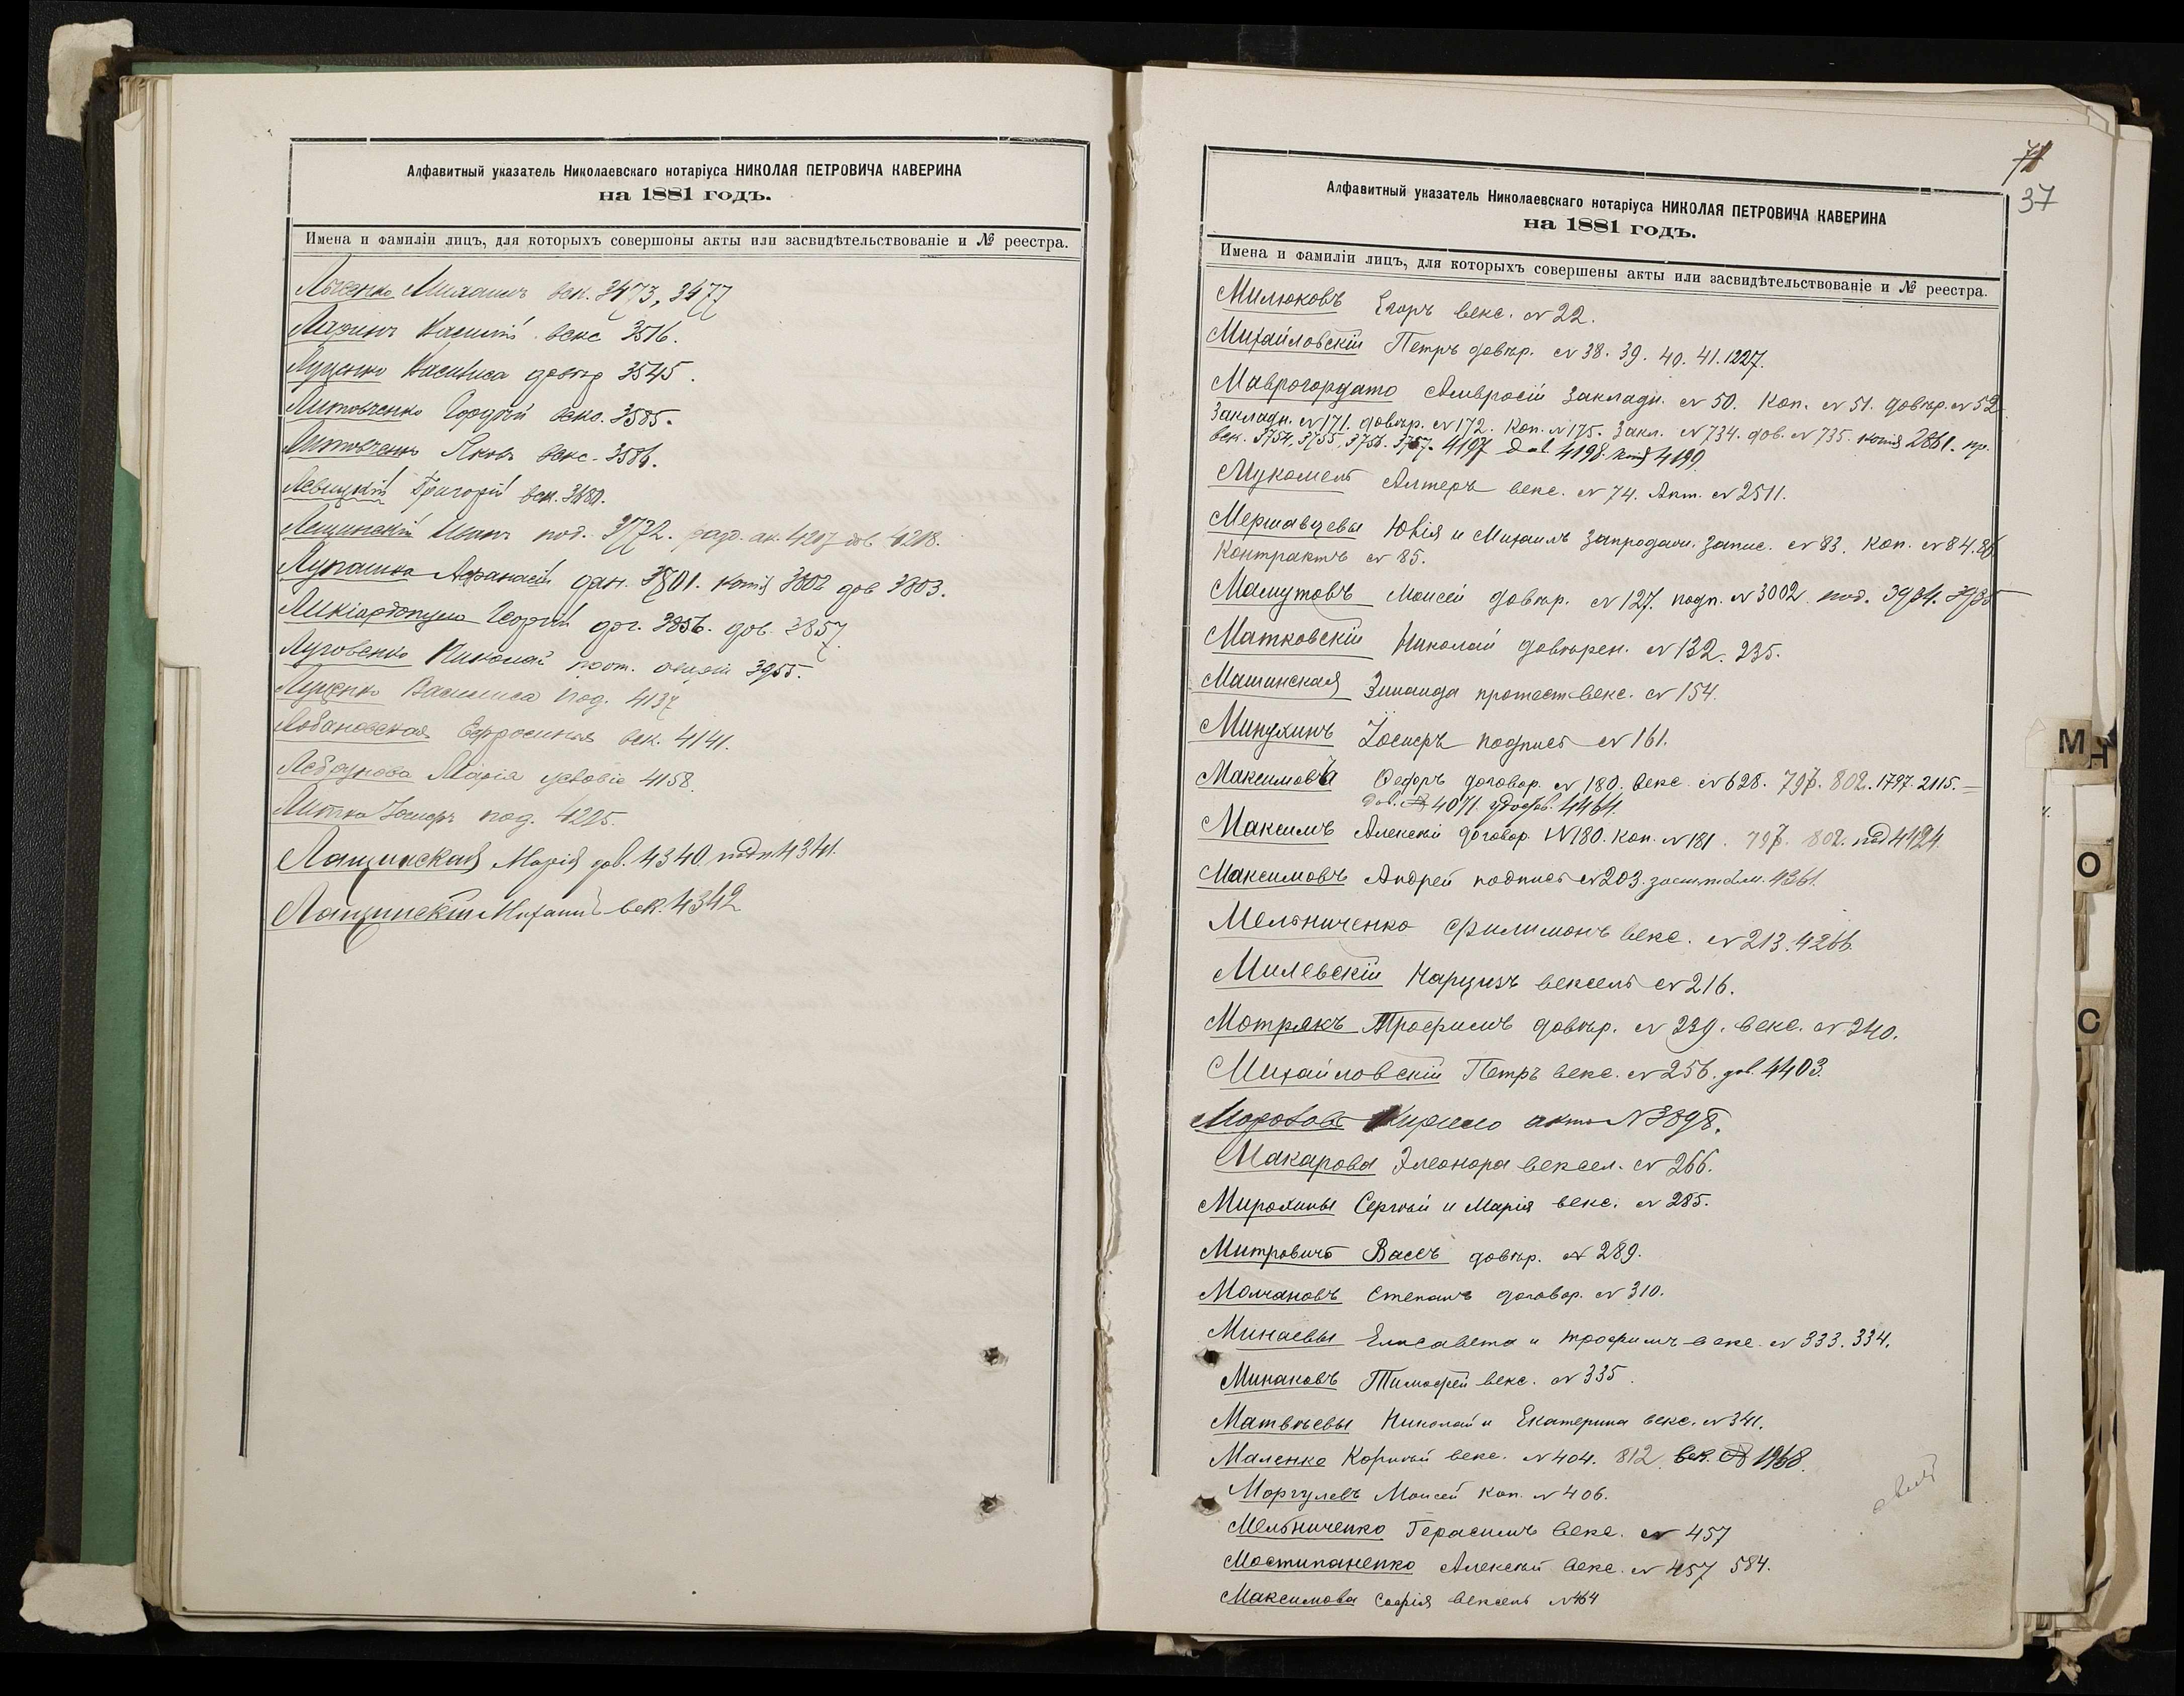 Алфавитный указатель Николаевскаго нотаріуса НИКОЛАЯ ПЕТРОВИЧА КАВЕРИНА
на 1881 годъ.
Имена и фамиліи лицъ, для которыхъ совершоны акты или засвидѣтельствованіе и № реестра.
Михаилъ век. 3473, 3477
Василій векс 3516.
Луценко Василиса довѣр 3545.
Литовченко Гордѣй векс. 3585.
Литовченко Яковъ векс. 3586.
Левицкій Григорій век. 3680.
Лещинскій Иванъ под. 3772. разд. ак. 4207 дов. 4208.
Лупашко Афанасій дан. 3801. копія 3802 дов 3803.
Ликіардопуло Георгій дог. 3856. дов. 3857
Луговенко Николай 3955.
Луценко Василиса под. 4137
Лобановская Ефросинья век. 4141.
Марія условіе 4158.
Литко Іосифъ под. 4225.
Лащинская Марія дов. 4340 подп 4341.
Лащинскій Михаилъ век. 4342
71
37
Алфавитный указатель Николаевскаго нотаріуса НИКОЛАЯ ПЕТРОВИЧА КАВЕРИНА
на 1881 годъ.
Имена и фамиліи лицъ, для которыхъ совершены акты или засвидѣтельствованіе и № реестра.
Милюковъ Егоръ векс. № 22.
Михайловскій Петръ довѣр. № 38. 39. 40. 41. 1227.
Маврогордато Амвросій закладн. № 50. Коп. № 51. довѣр. № 52
Закладн. № 171. довѣр. № 172. Коп. № 175. Закл. № 734. дов. № 735. копія 2861. пр.
век. 3754, 3755, 3756. 3757. 4197 дов. 4198. копія 4199.
Мукомель Алтеръ векс. № 74. Акт. № 2511.
Мершавцевы Юлія и Михаилъ Запродажн. запис. № 83. Коп. № 84. 86
Контрактъ № 85.
Мамутовъ Моисей довѣр. № 127. подп. № 3002. под. 3934. 3935
Матковскій Николай довѣрен. № 132. 235.
Машинская Зинаида протест векс. № 154.
Минухинъ Іосифъ подпись № 161.
Максимовъ Федоръ договор. № 180. векс. № 628. 797. 802. 1797. 2115.
дов. № 4071. 4464.
Максимъ Алексѣй договор. № 180. коп. № 181. 797. 802. под 4424.
Максимовъ Андрей подпись № 203. 4361.
Мельниченко Филимонъ векс. № 213. 4266.
Милевскій Нарцизъ вексель № 216.
Мотрякъ Трофимъ довѣр. № 239. векс. № 240.
Михайловскій Петръ векс. № 256. дов. 4403.
Морозовъ Кирило актъ № 3898.
Макарова Элеонора вексел. № 266.
Мирохины Сергѣй и Марія векс. № 285.
Митровичъ Васъ довѣр. № 289.
Молчановъ Степанъ договор. № 310.
Минаевы Елисавета и Трофимъ векс. № 333. 334.
Минаковъ Тимофей векс. № 335.
Матвѣевы Николай и Екатерина векс. № 341.
Маленко Корнѣй векс. № 404. 812. век. № 1968.
Моргулевъ Моисей коп. № 406.
Мельниченко Герасимъ векс. № 457
Мостипаненко Алексѣй векс. № 457 584.
Максимова Софія вексель № 464
М
Н
О
С